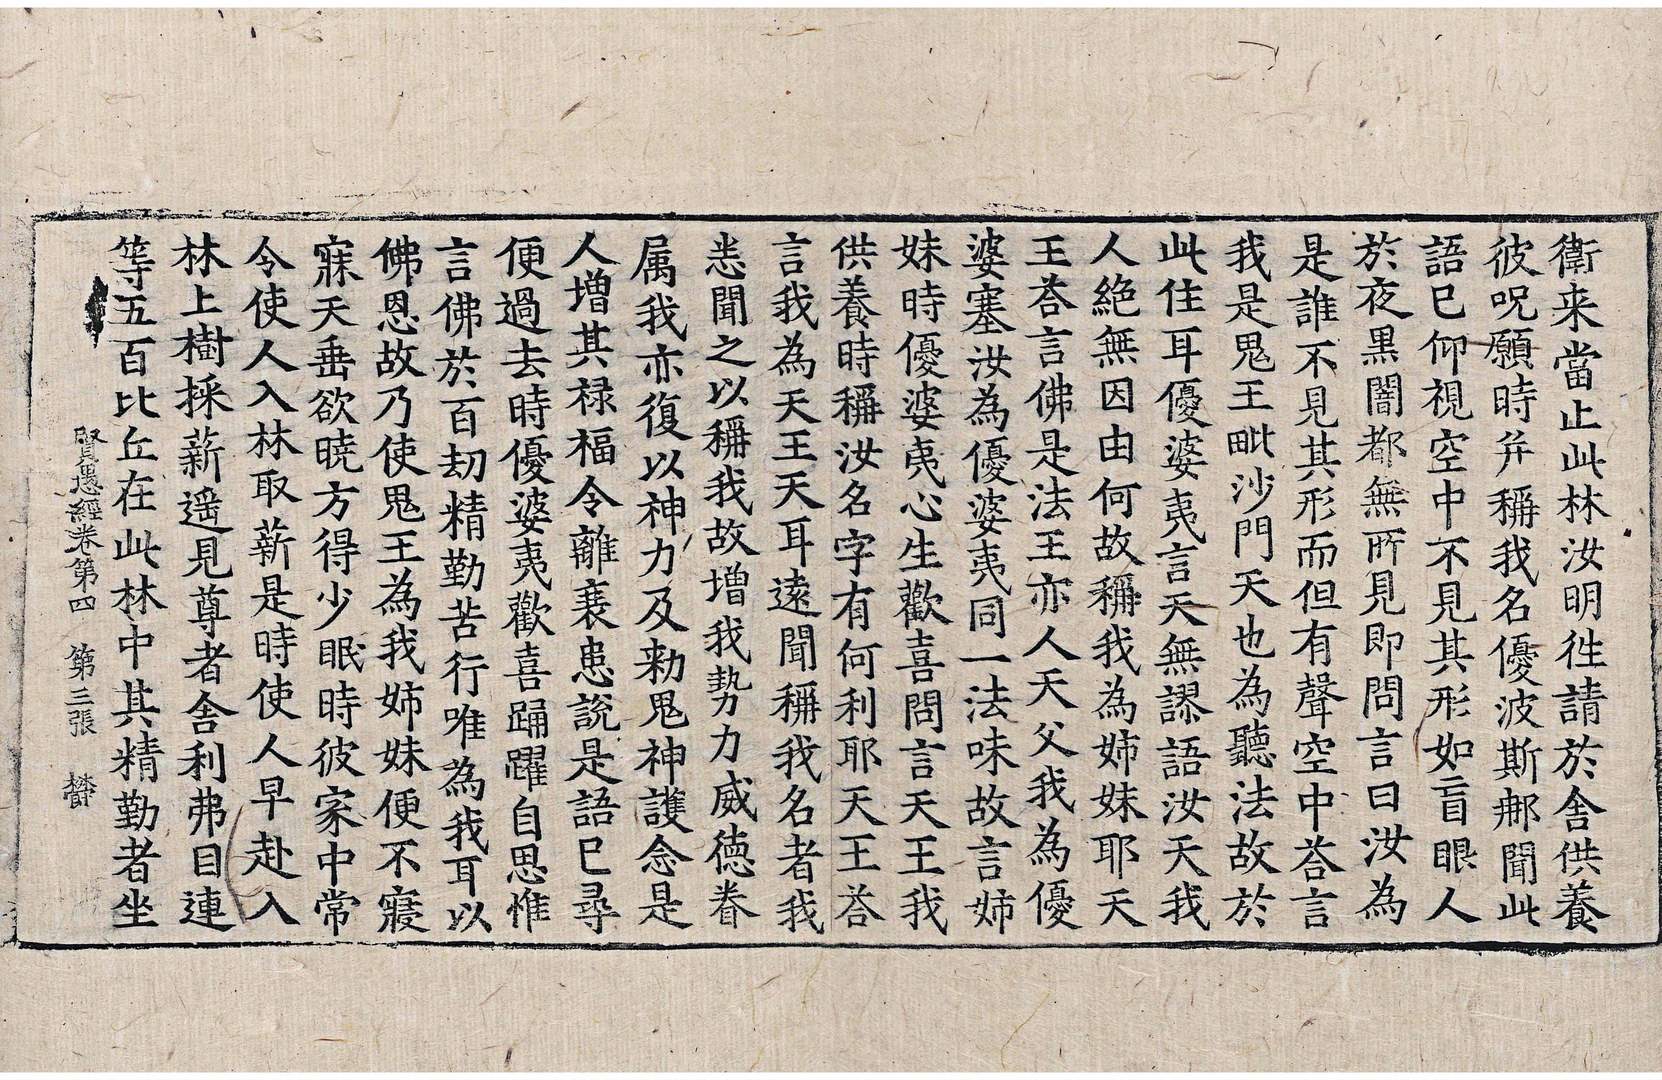 衛来當止此林汝明徃請於舎供養
彼呪願時并稱我名優波斯那聞此
語已仰視空中不見其形如盲眼人
於夜黒闇都無所見即問言曰汝為
是誰不見其形而但有聲空中荅言
我是鬼王毗沙門天也為聽法故於
此住耳優婆夷言天無謬語汝天我
人絶無因由何故稱我為姉妹耶天
王荅言佛是法王亦人天父我為優
婆塞汝為優婆夷同一法味故言姉
妹時優婆夷心生歡喜問言天王我
供養時稱汝名字有何利耶天王荅
言我為天王天耳遠聞稱我名者我
悉聞之以稱我故增我勢力威德眷
属我亦復以神力及勑鬼神護念是
人增其禄福令離衰患說是語已尋
便過去時優婆夷歡喜踊躍自思惟
言佛於百劫精勤苦行唯為我耳以
佛恩故乃使鬼王為我姉妹便不寢
寐天垂欲曉方得少眠時彼家中常
令使人入林取薪是時使人早赴入
林上樹採薪遥見尊者舎利弗目連
等五百比丘在此林中其精勤者坐
賢愚經卷第四　第三張